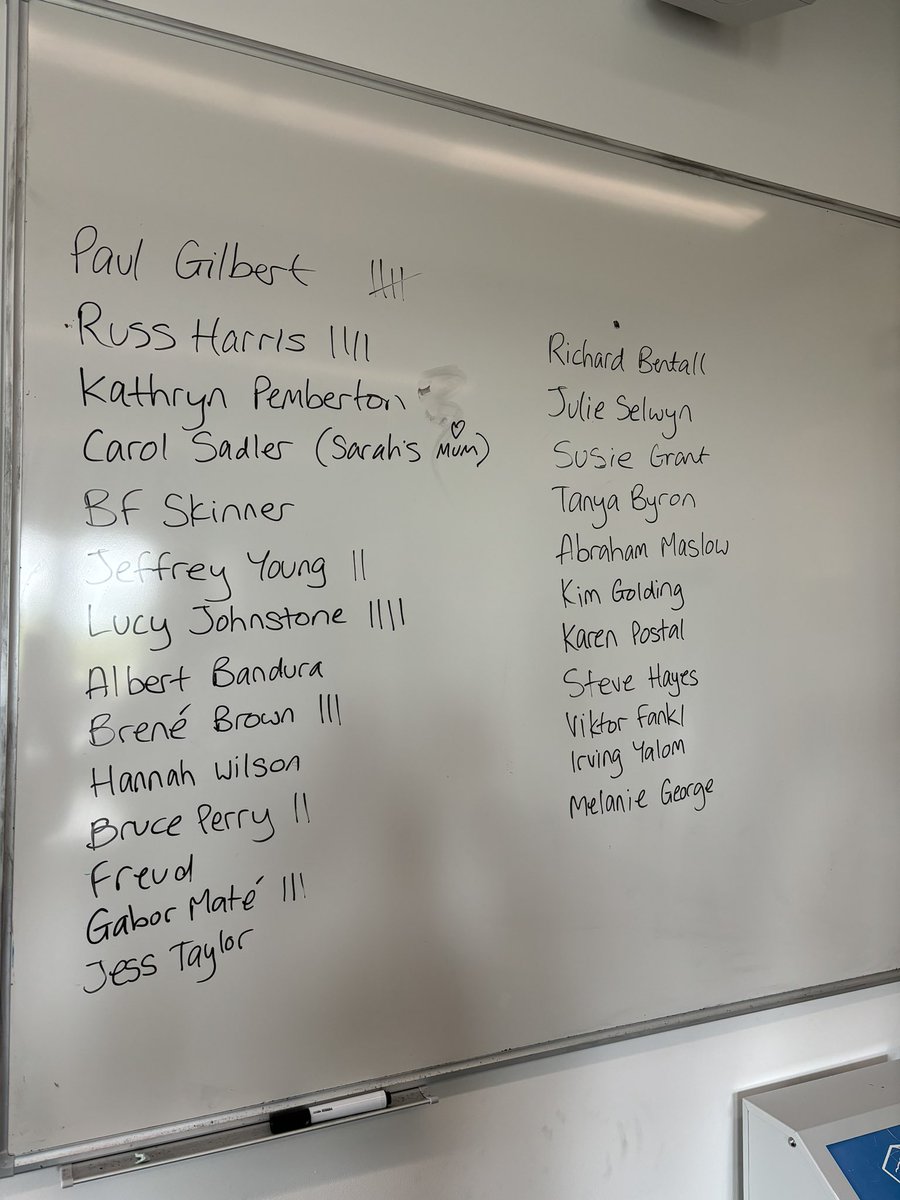 Paul Gilbert ||||
Russ Harris ||||
Kathryn Pemberton
Carol Sadler (Sarah's Mum)
BF Skinner
Jeffrey Young ||
Lucy Johnstone ||||
Albert Bandura
Brené Brown |||
Hannah Wilson
Bruce Perry ||
Freud
Gabor Maté |||
Jess Taylor
Richard Bentall
Julie Selwyn
Susie Grant
Tanya Byron
Abraham Maslow
Kim Golding
Karen Postal
Steve Hayes
Viktor Fankl
Irving Yalom
Melanie George